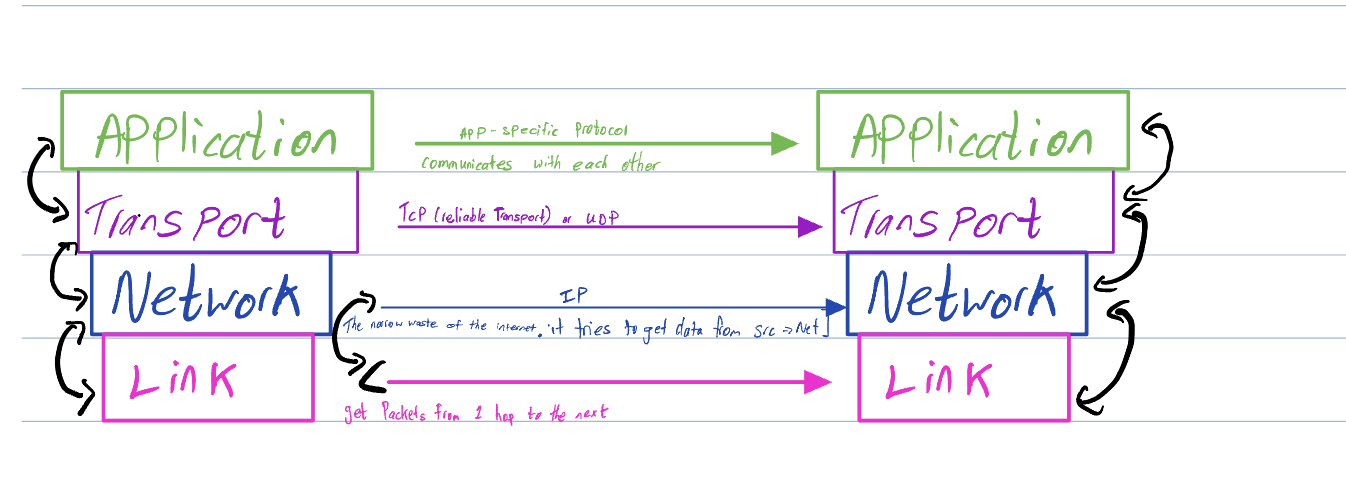 Application
APP-specific Protocol
Communicates with each other
Application
Transport
TCP (reliable Transport) or UDP
Transport
Network
IP
The narrow waste of the internet. it tries to get data from src → Net
Network
Link
get Packets from 1 hop to the next
Link